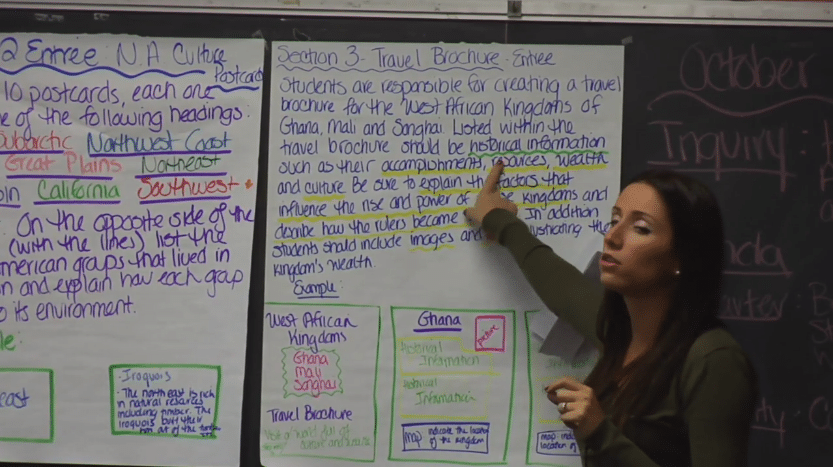 2 Entree N.A Culture
Postcard
10 postcards, each one
of the following headings:
Subarctic Northwest Coast
Great Plains Northeast
California Southwest
On the opposite side of the
(with the lines) list the
American groups that lived in
and explain how each group
to its environment.
Iroquois
- The northeast is rich
in natural resources
including timber. The
Iroquois built their
out of the
Section 3- Travel Brochure - Entree
Students are responsible for creating a travel
brochure for the West African Kingdoms of
Ghana, Mali and Songhai. Listed within the
travel brochure should be historical information
such as their accomplishments, resources, wealth
and culture. Be sure to explain the factors that
influence the rise and power of kingdoms and
describe how the rulers became In addition
students should include images and illustrating the
kingdom's wealth.
Example:
West African
Kingdoms
Ghana
Mali
Songhai
Travel Brochure
Ghana
picture
Historical
Information
Historical
Information
map indicate the location
of the kingdom
map
location of
October
Inquiry: